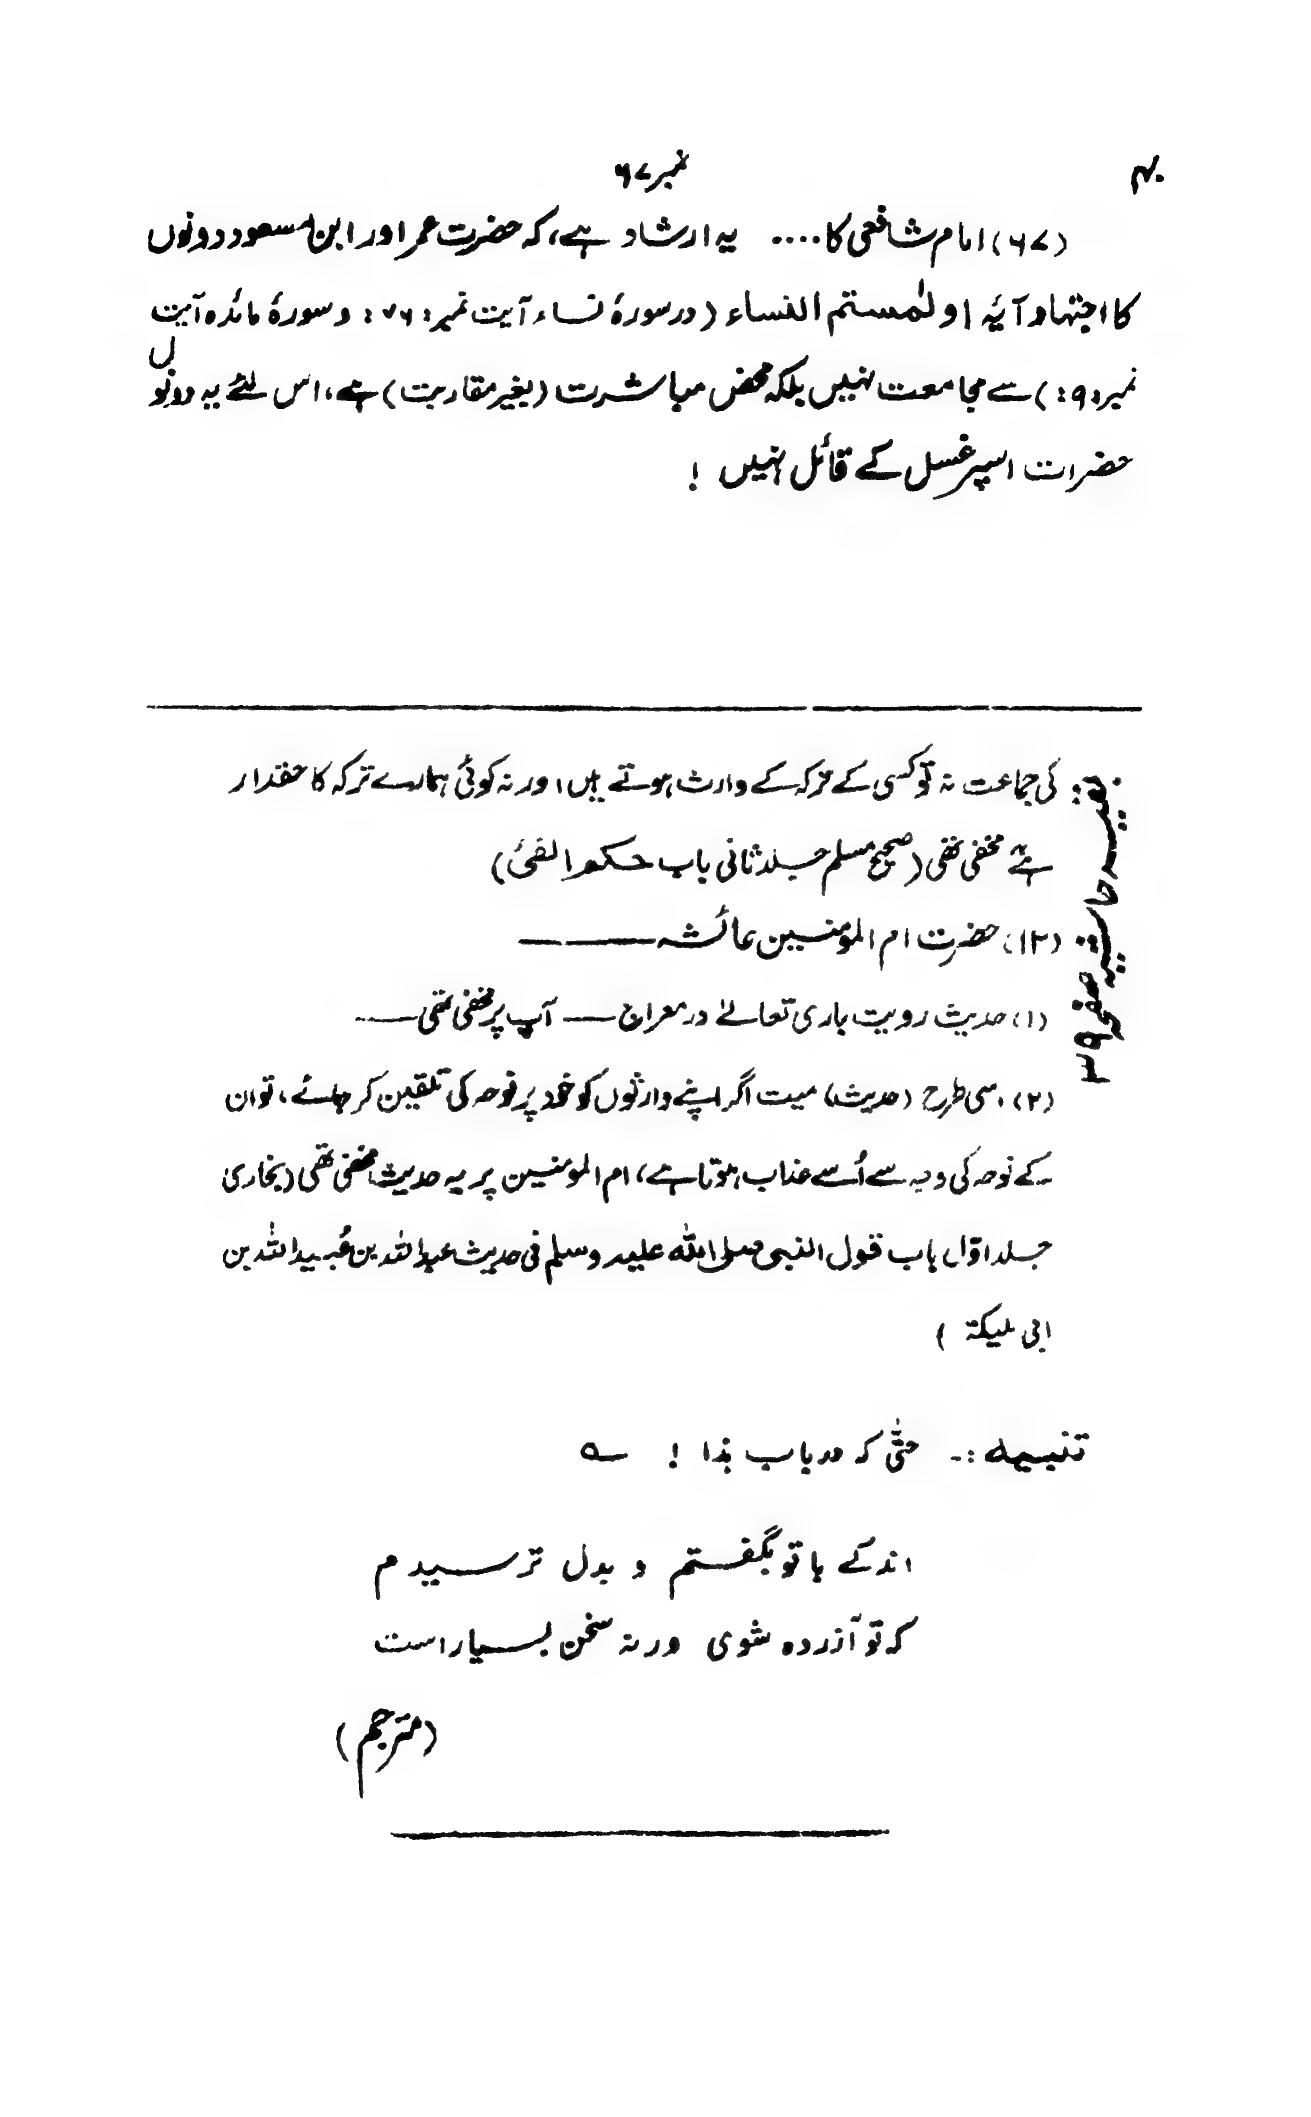 ۴۰
نمبر ۶۷
(۶۷) امام شافعی کا.... یہ ارشاد ہے، کہ حضرت عمر اور ابن مسعود دونوں
کا اجتہاد آیۂ او لٰمستم النساء (در سورۂ نساء آیت نمبر: ۷۶: و سورۂ مائدہ آیت
نمبر: ۹:) سے مجامعت نہیں بلکہ محض مباشرت (بغیر مقاربت) ہے، اس لئے یہ دونوں
حضرات اسپر غسل کے قائل نہیں !
بقیہ حاشیہ صفحہ ۳۹
کی جماعت نہ تو کسی کے ترکہ کے وارث ہوتے ہیں اور نہ کوئی ہمارے ترکہ کا حقدار
ہے مخفی تھی (صحیح مسلم جلد ثانی باب حکم الفیٔ)
(۱۲) حضرت ام المومنین عائشہ ———
(۱) حدیث رویت باری تعالےٰ در معراج — آپ پر مخفی تھی —
(۲) اسی طرح (حدیث) میت اگر اپنے وارثوں کو خود پر نوحہ کی تلقین کر جائے، تو ان
کے نوحہ کی وجہ سے اُسے عذاب ہوتا ہے، ام المومنین پر یہ حدیث مخفی تھی (بخاری
جلد اوّل باب قول النبی صلی اللہ علیہ وسلم فی حدیث عبداللہ بن عُبیداللہ بن
ابی ملیکۃ )
تنبیہ :۔ حتّٰی کہ در باب ہذا ! ؎
اندکے با تو بگفتم و بدل ترسیدم
کہ تو آزردہ شوی ورنہ سخن بسیار است
(مترجم)